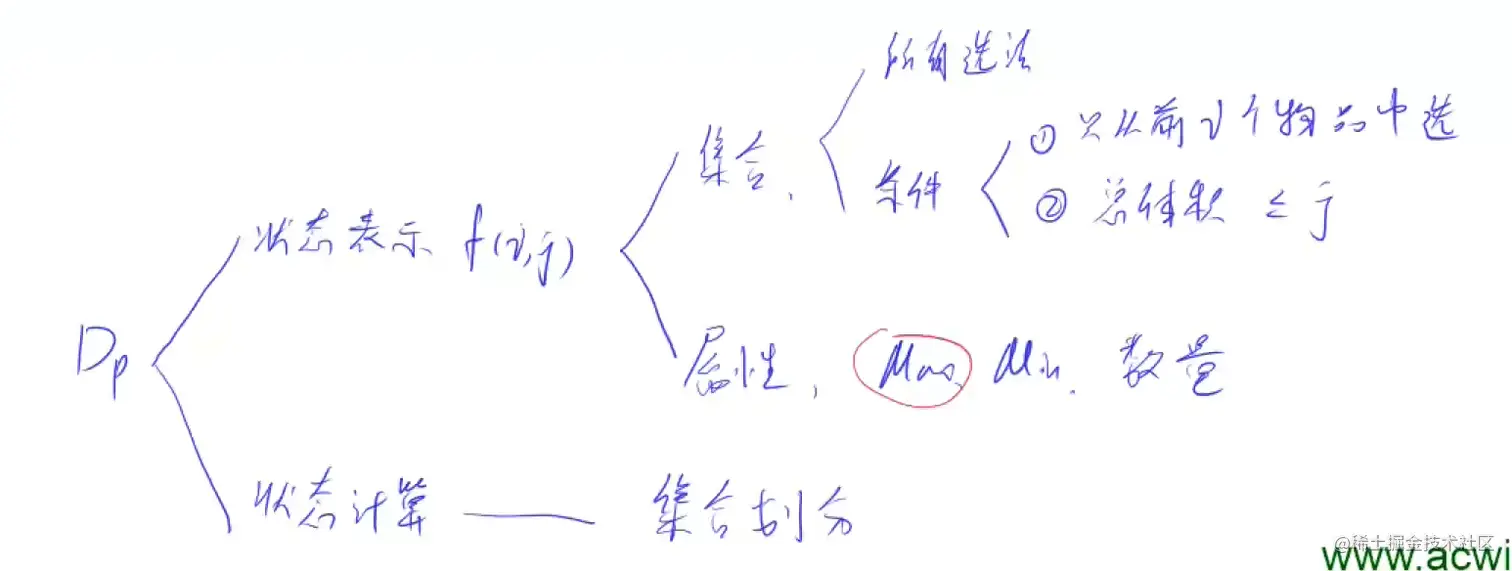 所有选法
集合.
条件
① 只从前i个物品中选
② 总体积 ≤ j
状态表示 f(i,j)
Dp
属性, Max, Min. 数量
状态计算
集合划分
@稀土掘金技术社区
www.acwi